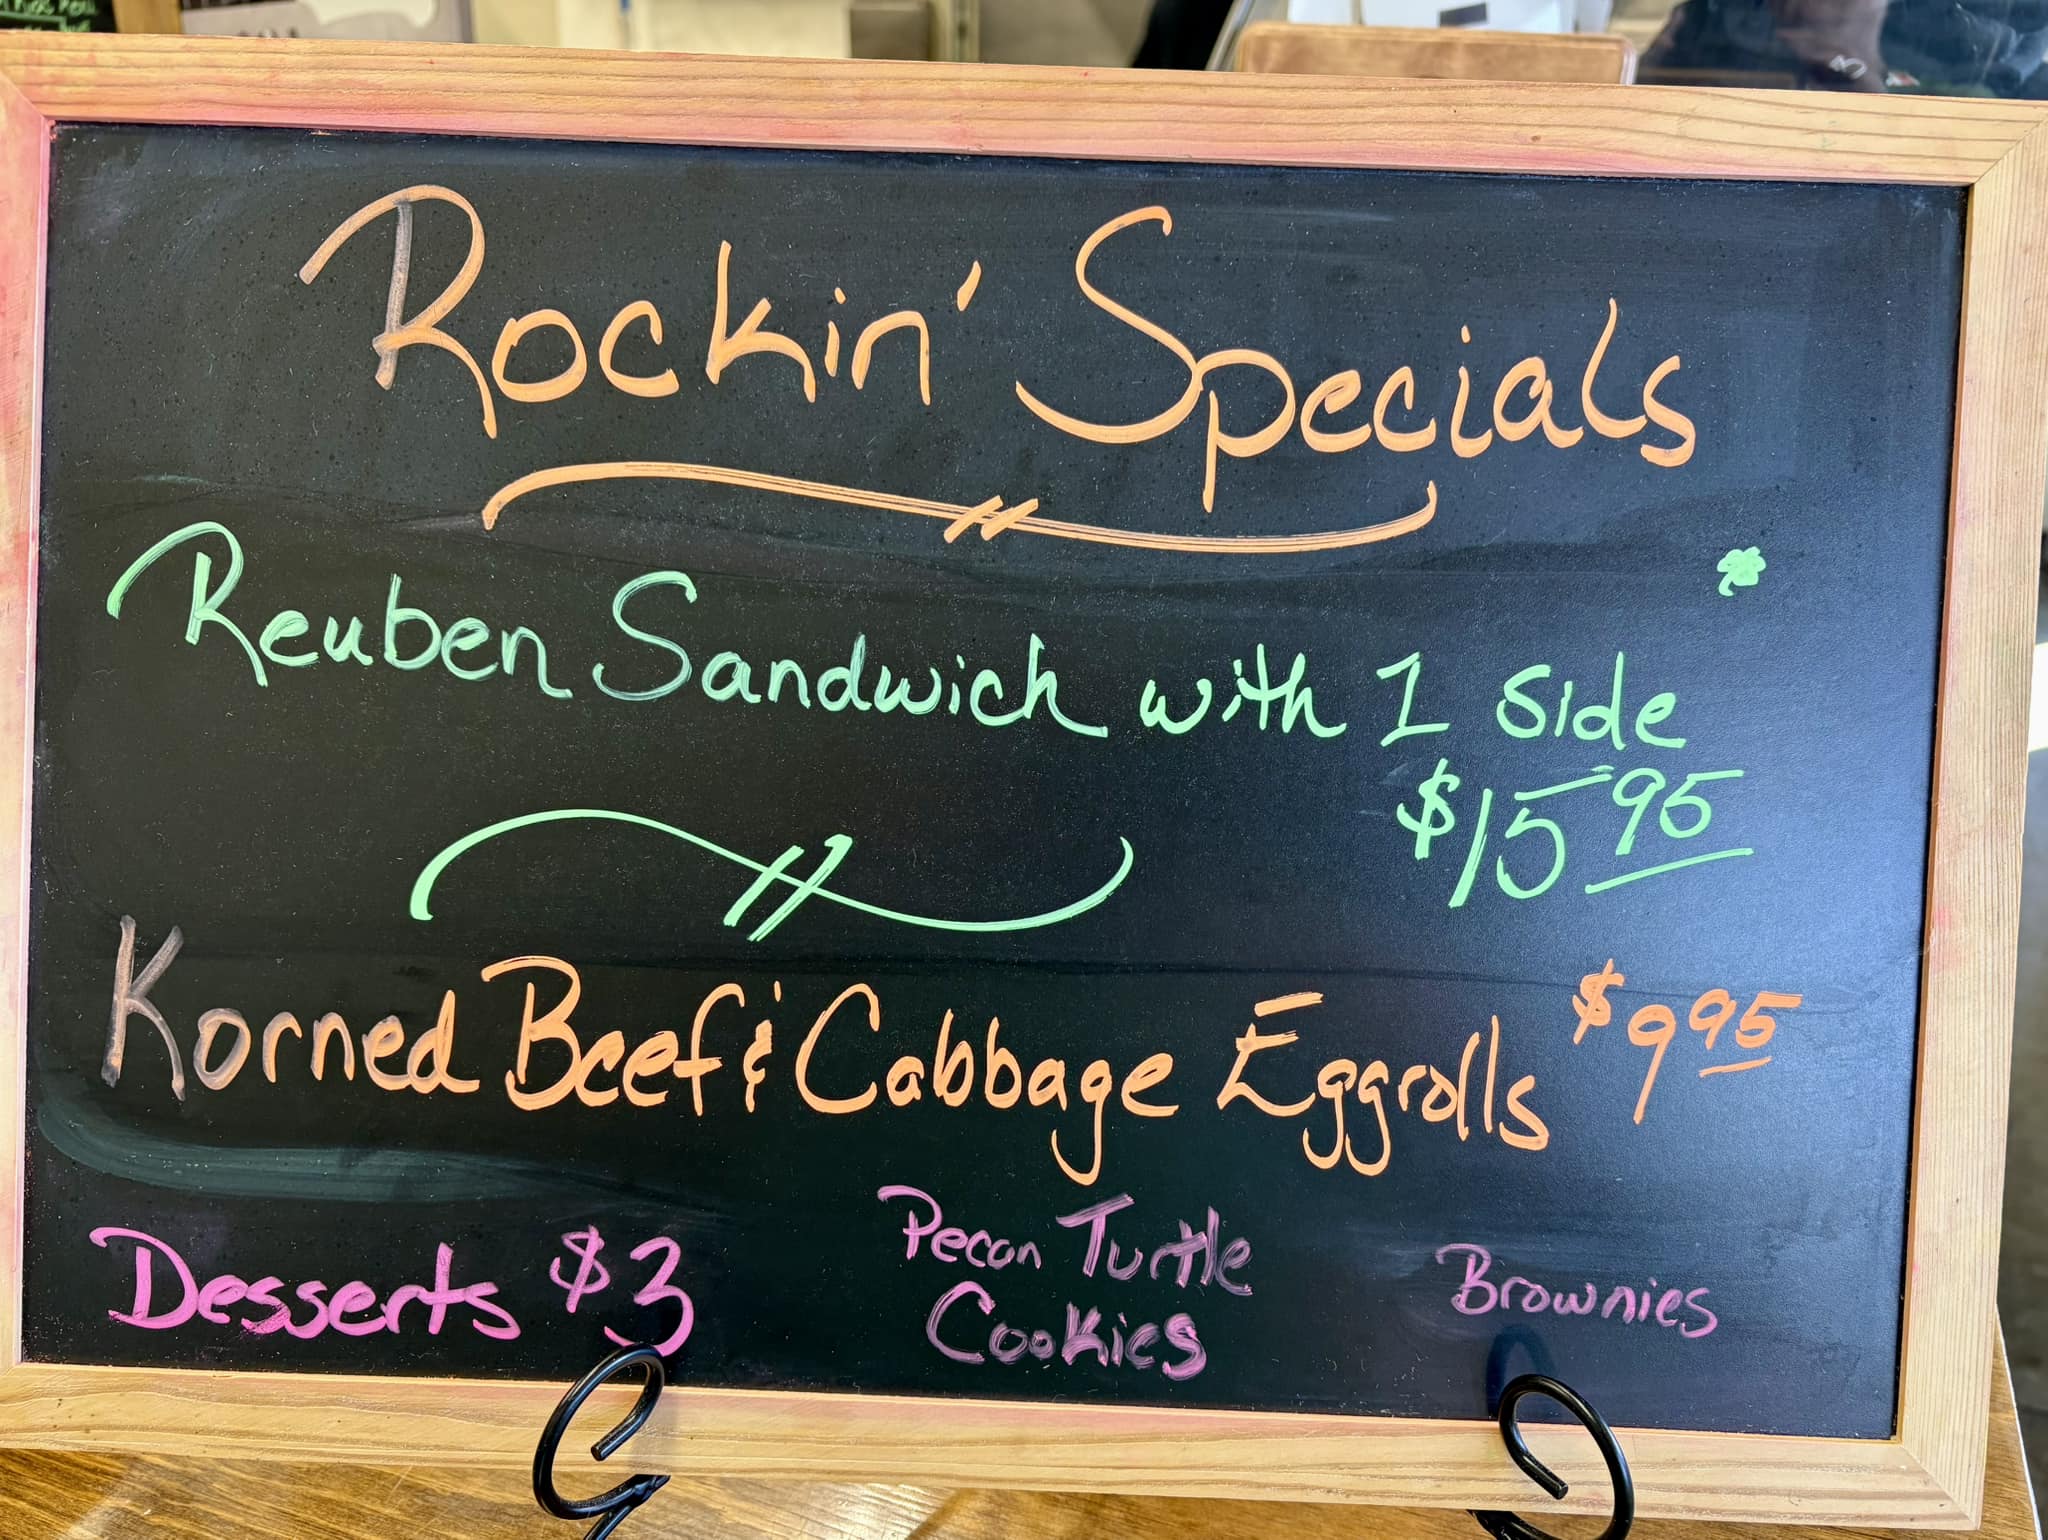 Rockin' Specials
Reuben Sandwich with 1 side
$15 95
Korned Beef & Cabbage Eggrolls $9 95
Desserts $3
Pecan Turtle
Cookies
Brownies